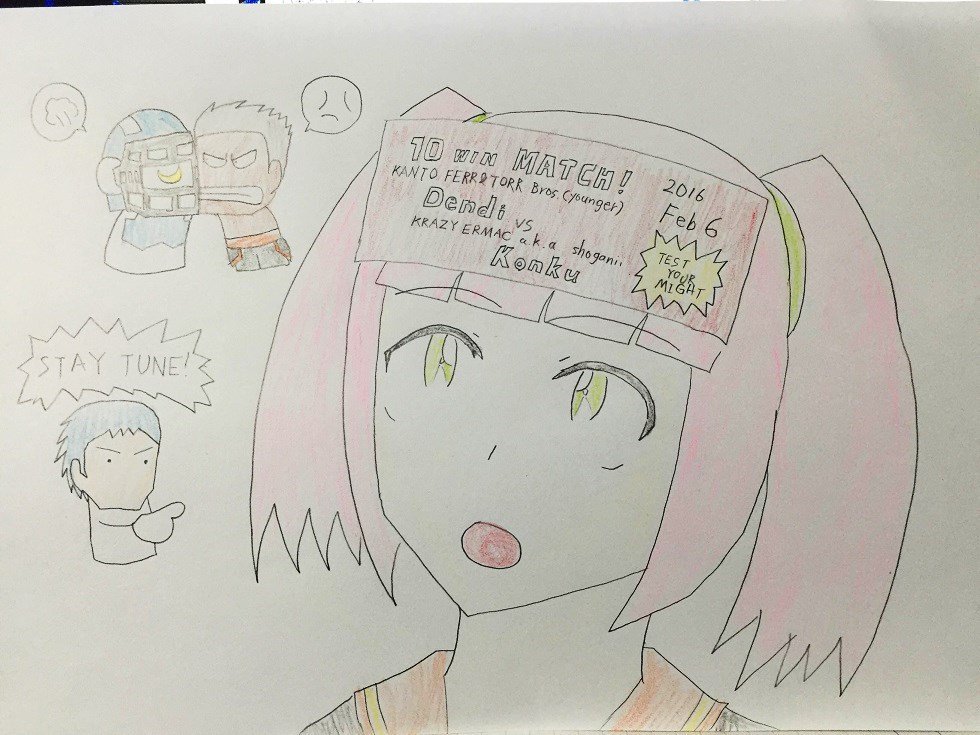 10 WIN MATCH!
KANTO FERR&TORR Bros.(younger)
Dendi
vs
KRAZY ERMAC a.k.a shoganii
Konku
2016
Feb 6
TEST
YOUR
MIGHT
STAY TUNE!